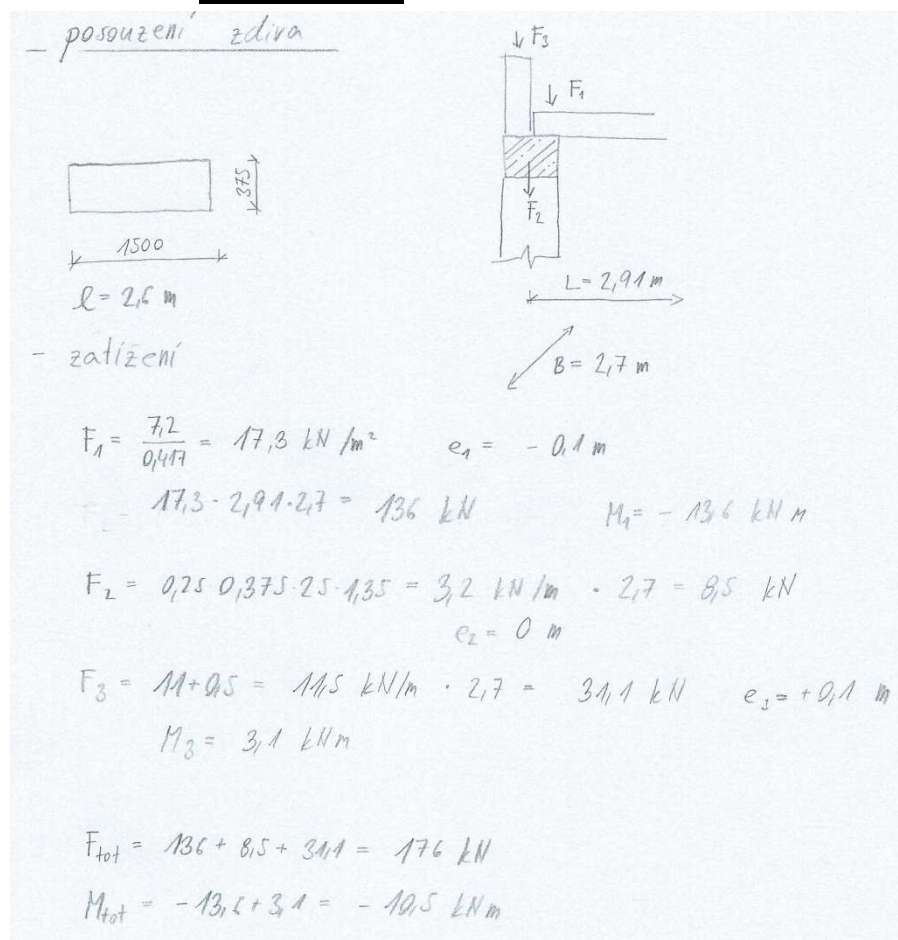 - posouzení zdiva
F₃
F₁
F₂
375
1500
l = 2,6 m
L = 2,91 m
B = 2,7 m
- zatížení
F₁ = 7,2 / 0,417 = 17,3 kN/m² e₁ = - 0,1 m
17,3 · 2,91 · 2,7 = 136 kN M₁ = - 13,6 kNm
F₂ = 0,25 0,375 · 25 · 1,35 = 3,2 kN/m · 2,7 = 8,5 kN
e₂ = 0 m
F₃ = 11+0,5 = 11,5 kN/m · 2,7 = 31,1 kN e₃ = +0,1 m
M₃ = 3,1 kNm
Ftot = 136 + 8,5 + 31,1 = 176 kN
Mtot = -13,6 + 3,1 = - 10,5 kNm